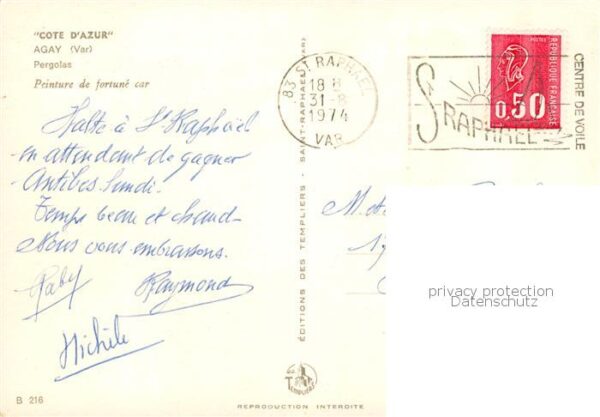 "COTE D'AZUR"
AGAY (Var)
Pergolas
Peinture de fortuné car
Halte à St Raphaël
en attendant de gagner
Antibes lundi.
Temps beau et chaud-
Nous vous embrassons.
Raymond
Michèle
B 216
EDITIONS DES TEMPLIERS - SAINT-RAPHAEL (VAR)
TEMPLIERS
REPRODUCTION INTERDITE
83 ST RAPHAEL
18 H
31-8
1974
VAR
ST RAPHAEL
CENTRE DE VOILE
POSTES
REPUBLIQUE FRANÇAISE
0,50
M. et
privacy protection
Datenschutz